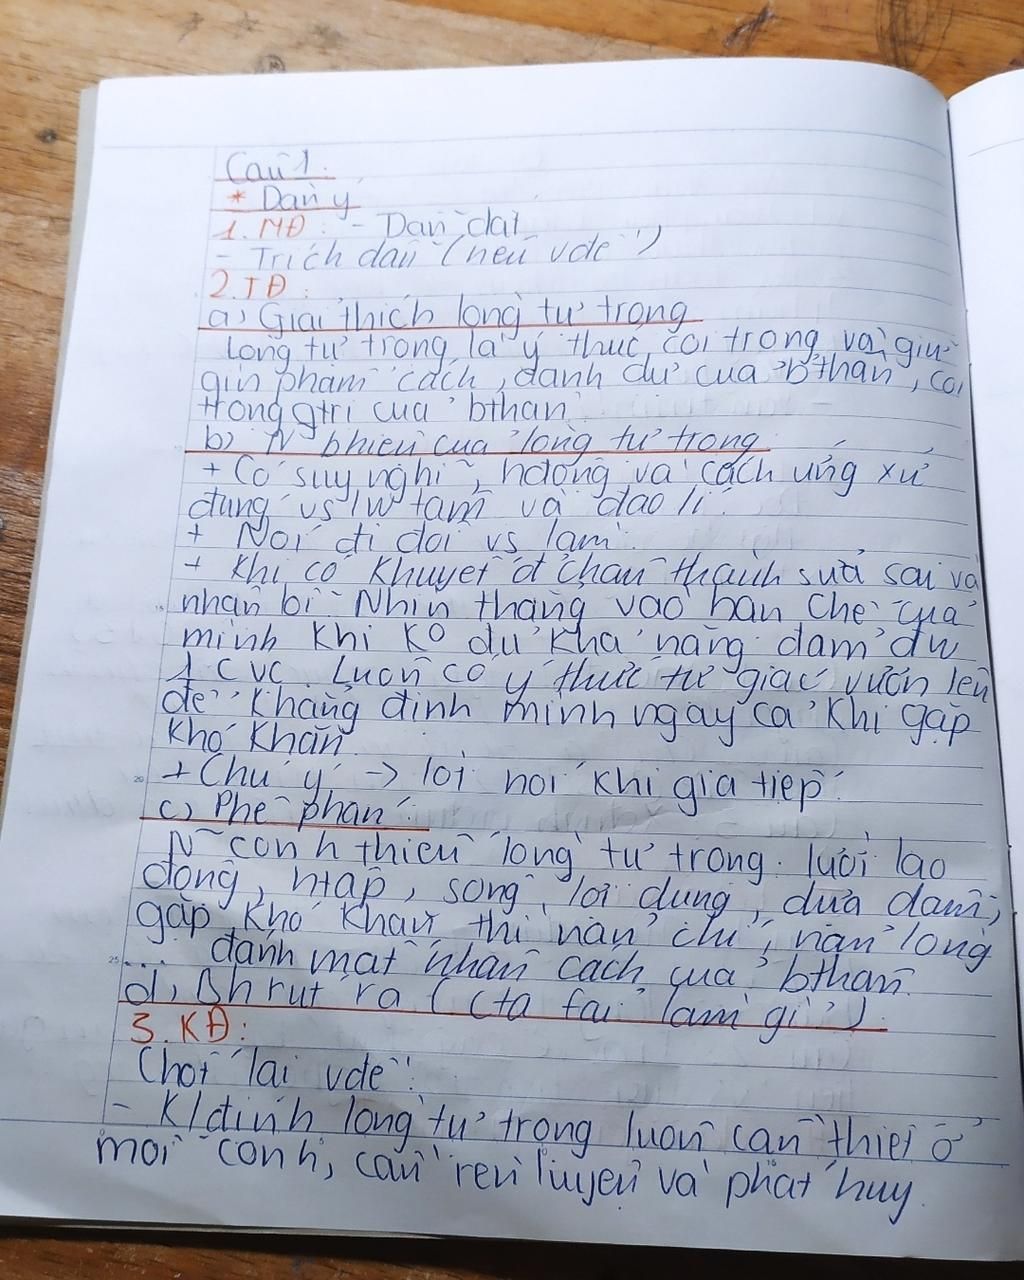 Câu 1:
* Dàn ý
1. MĐ: - Dẫn dắt
- Trích dẫn (nêu vđề)
2. TĐ:
a) Giải thích lòng tự trọng
Lòng tự trọng là ý thức coi trọng và giữ
gìn phẩm cách, danh dự của bthân, coi
trọng gtrị của bthân
b) N~ bhiện của lòng tự trọng
+ Có suy nghĩ, hđộng và cách ứng xử
đúng vs lw tâm và đạo lí.
+ Nói đi đôi vs làm.
+ Khi có khuyết đ chân thành sửa sai và
nhận bi Nhìn thẳng vào hạn chế của
mình khi ko đủ khả năng đảm đw
1 cvc. Luôn có ý thức tự giác vươn lên
để khẳng định mình ngay cả khi gặp
khó khăn.
+ Chú ý -> lời nói khi gia tiếp.
c) Phê phán:
N~ con n thiếu lòng tự trọng: lười lao
động, htập, sống lợi dụng, dựa dẫm,
gặp khó khăn thì nản chí, nản lòng
... đánh mất nhân cách của bthân.
d) Bh rút ra (cta fải làm gì?)
3. KĐ:
Chốt lại vđề:
- K/định lòng tự trọng luôn cần thiết ở
mỗi con n, cần rèn luyện và phát huy.